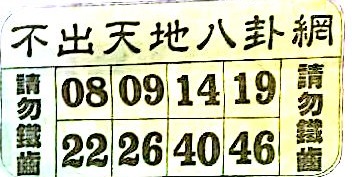 不出天地八卦網
請勿鐵齒
08 09 14 19
22 26 40 46
請勿鐵齒